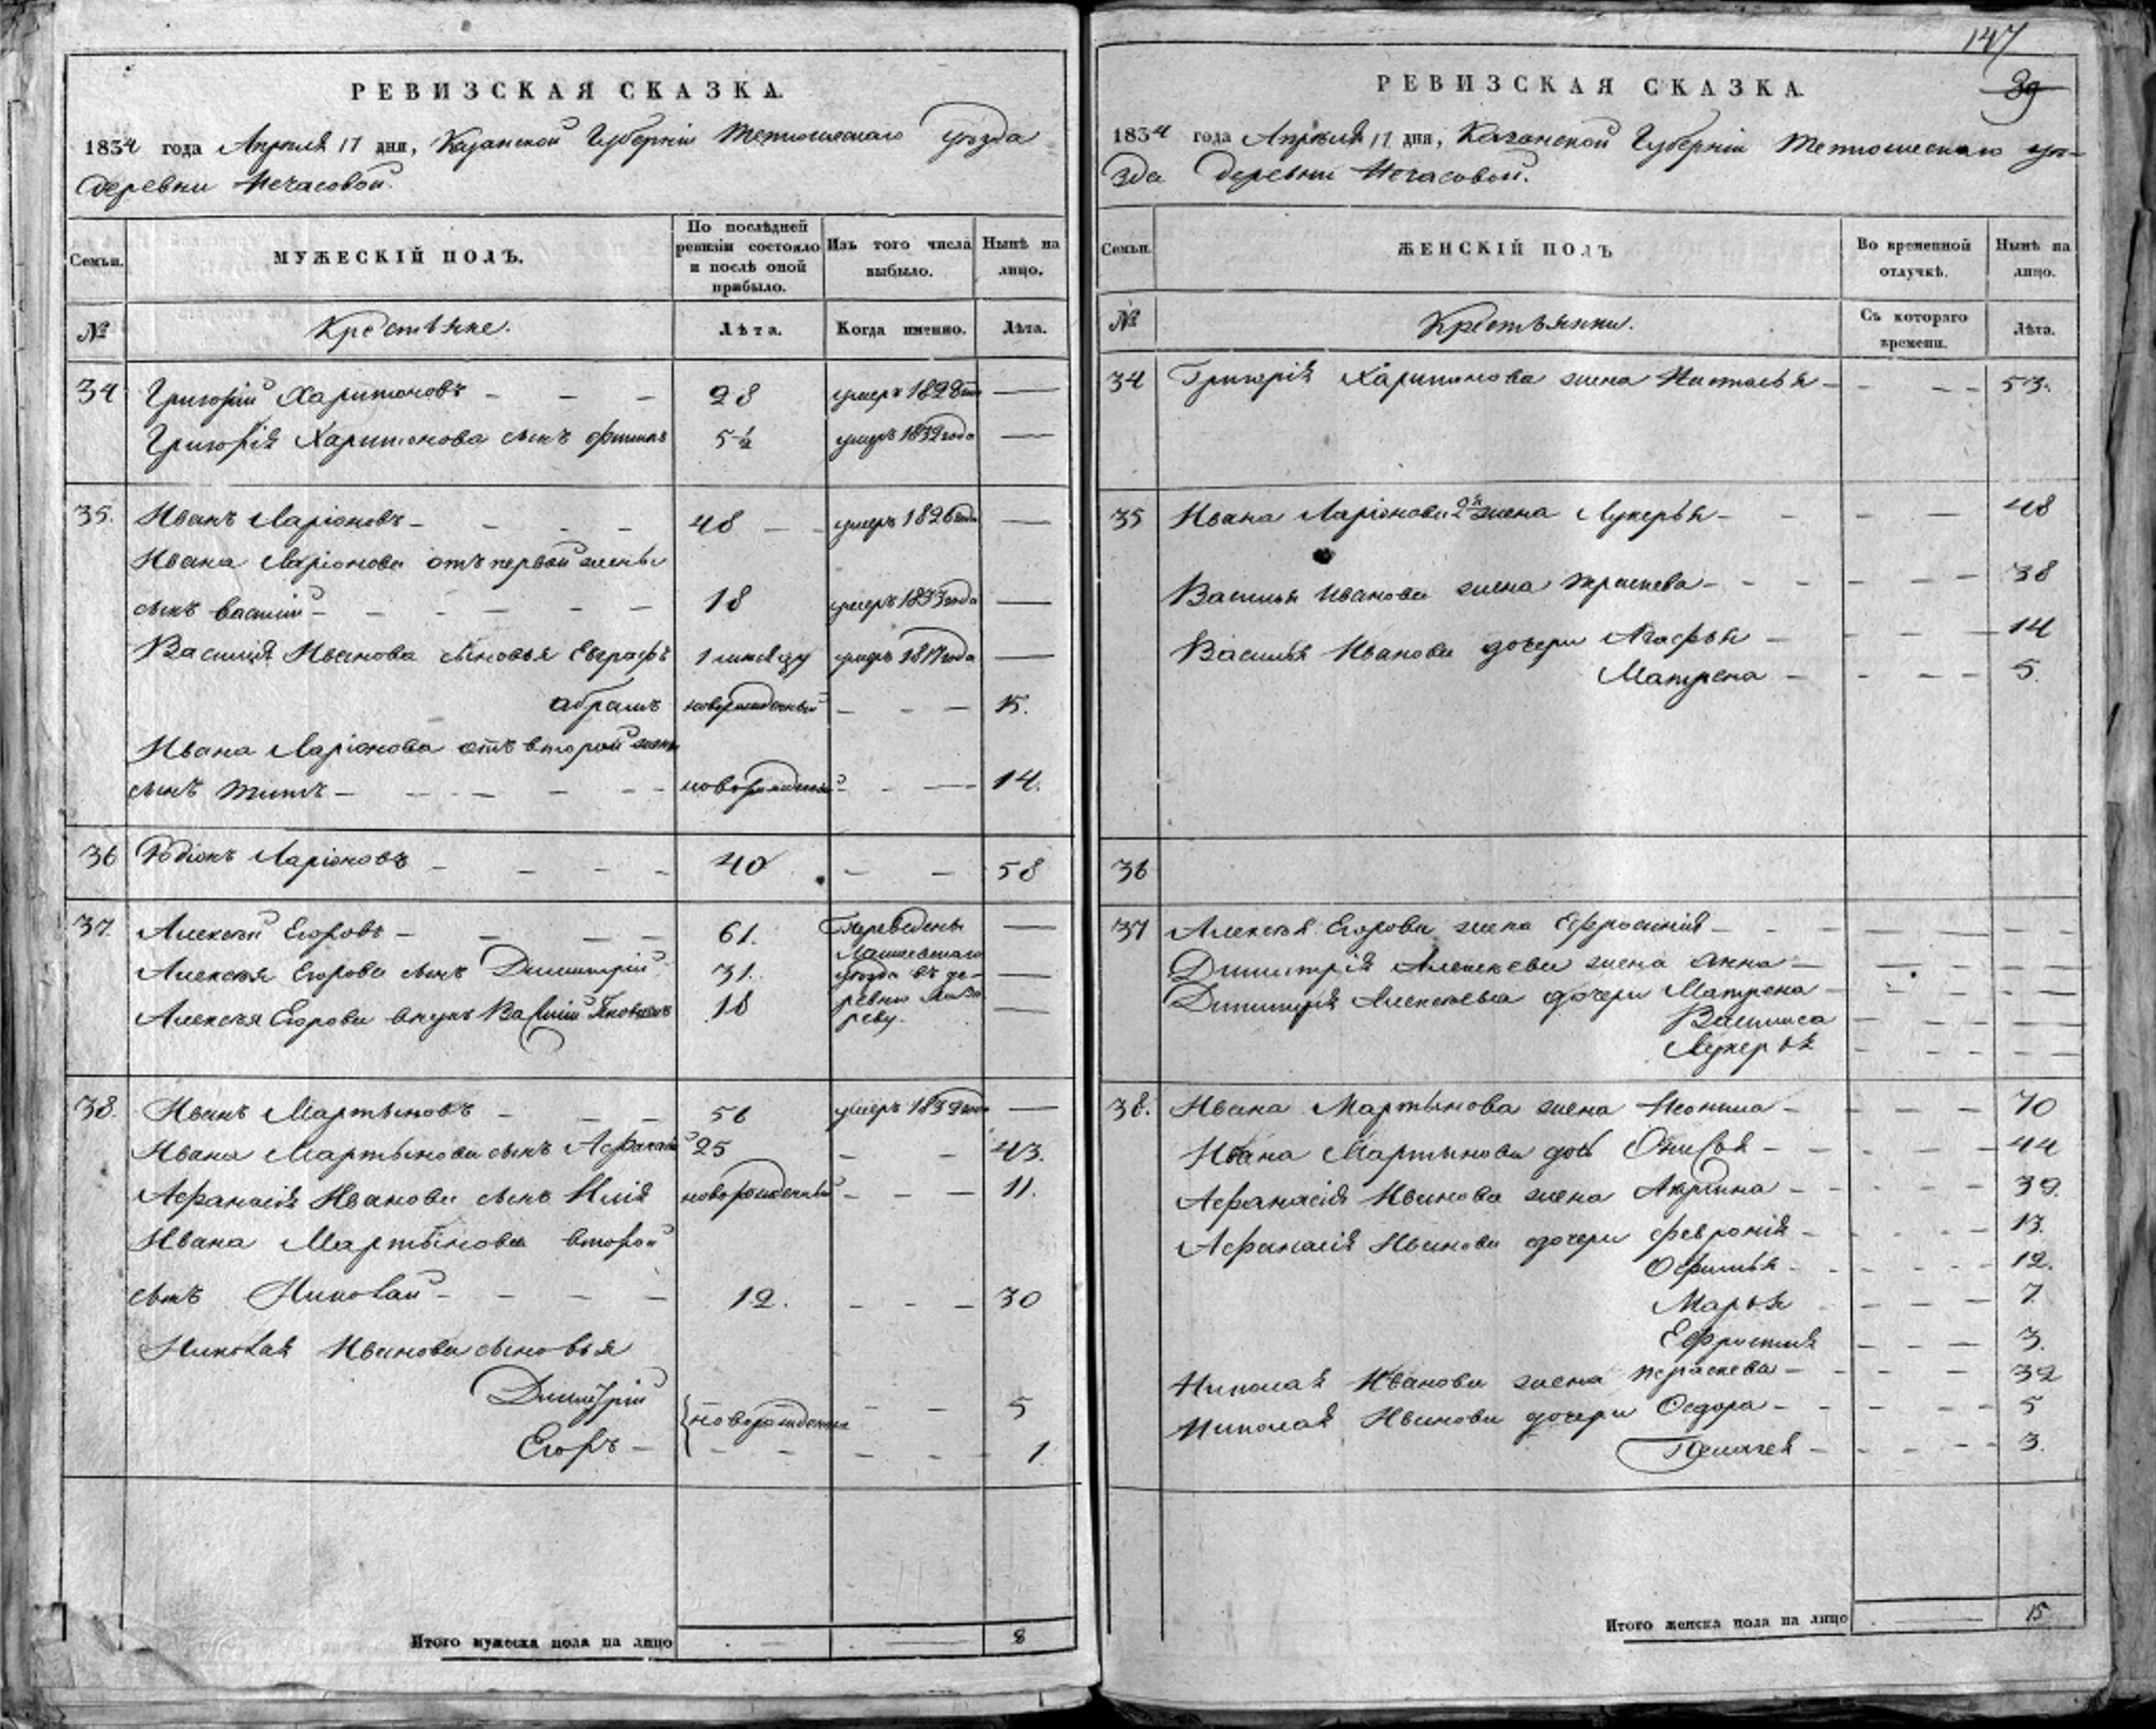 РЕВИЗСКАЯ СКАЗКА.
1834 года Апреля 17 дня, Казанской Губернiи Тетюшскаго уѣзда
деревни Нечасовой.
Семьи.
МУЖЕСКIЙ ПОЛЪ.
По послѣдней ревизiи состояло и послѣ оной прибыло.
Изъ того числа выбыло.
Нынѣ на лицо.
№
Крестьяне.
Лѣта.
Когда именно.
Лѣта.
34 Григорiй Харитоновъ — — — 28 умеръ 1828 —
Григорiя Харитонова сынъ 5½ умеръ 1832 года —
35. Иванъ Ларiоновъ — — — 48 — — умеръ 1826 года —
Ивана Ларiонова отъ первой жены
сынъ Василiй — — — 18 умеръ 1833 года —
Василiя Иванова сыновья Евграфъ 1 умеръ 1817 года —
Абрамъ новорожденный — — — 15.
Ивана Ларiонова отъ второй жены
сынъ Титъ — — — новорожденный — — 14.
36 Родiонъ Ларiоновъ — — — 40 — — 58
37. Алексѣй Егоровъ — — — 61. Переведены —
Алексѣя Егорова сынъ Димитрiй 31. Лаишевскаго уѣзда въ де- —
Алексѣя Егорова внукъ Василiй Яковлевъ 18 ревню —
38. Иванъ Мартыновъ — — — 56 умеръ 1832 года —
Ивана Мартынова сынъ Афанасiй 25 — — 43.
Афанасiя Иванова сынъ Илiя новорожденный — — — 11.
Ивана Мартынова второй
сынъ Николай — — — 12. — — — 30
Николая Иванова сыновья
Димитрiй новорожденные — — 5
Егоръ — — — — 1.
Итого мужеска пола на лицо — — 8
147
39
РЕВИЗСКАЯ СКАЗКА.
1834 года Апреля 17 дня, Казанской Губернiи Тетюшскаго уѣ-
зда деревни Нечасовой.
Семьи.
ЖЕНСКIЙ ПОЛЪ
Во временной отлучкѣ.
Нынѣ на лицо.
№
Крестьянки.
Съ котораго времени.
Лѣта.
34 Григорiя Харитонова жена Настасья — — — — 53.
35 Ивана Ларiонова 2я жена Лукерья — — — — 48
Василья Иванова жена Праскева — — — — 38
Василья Иванова дочери Агафья — — — — 14
Матрена — — — — 5.
36
37 Алексѣя Егорова жена Ефросинiя — — — —
Димитрiя Алексѣева жена Анна — — — —
Димитрiя Алексѣева дочери Матрена — — — —
Василиса — — — —
Лукерья — — — —
38. Ивана Мартынова жена — — — — 70
Ивана Мартынова дочь — — — — 44
Афанасiя Иванова жена Акулина — — — — 39.
Афанасiя Иванова дочери Февронiя — — — — 13.
Офимья — — — — 12.
Марья — — — 7.
Ефросинiя — — — 3.
Николая Иванова жена Праскева — — — — 32
Николая Иванова дочери Федора — — — — 5
Пелагея — — — — 3.
Итого женска пола на лицо — 15